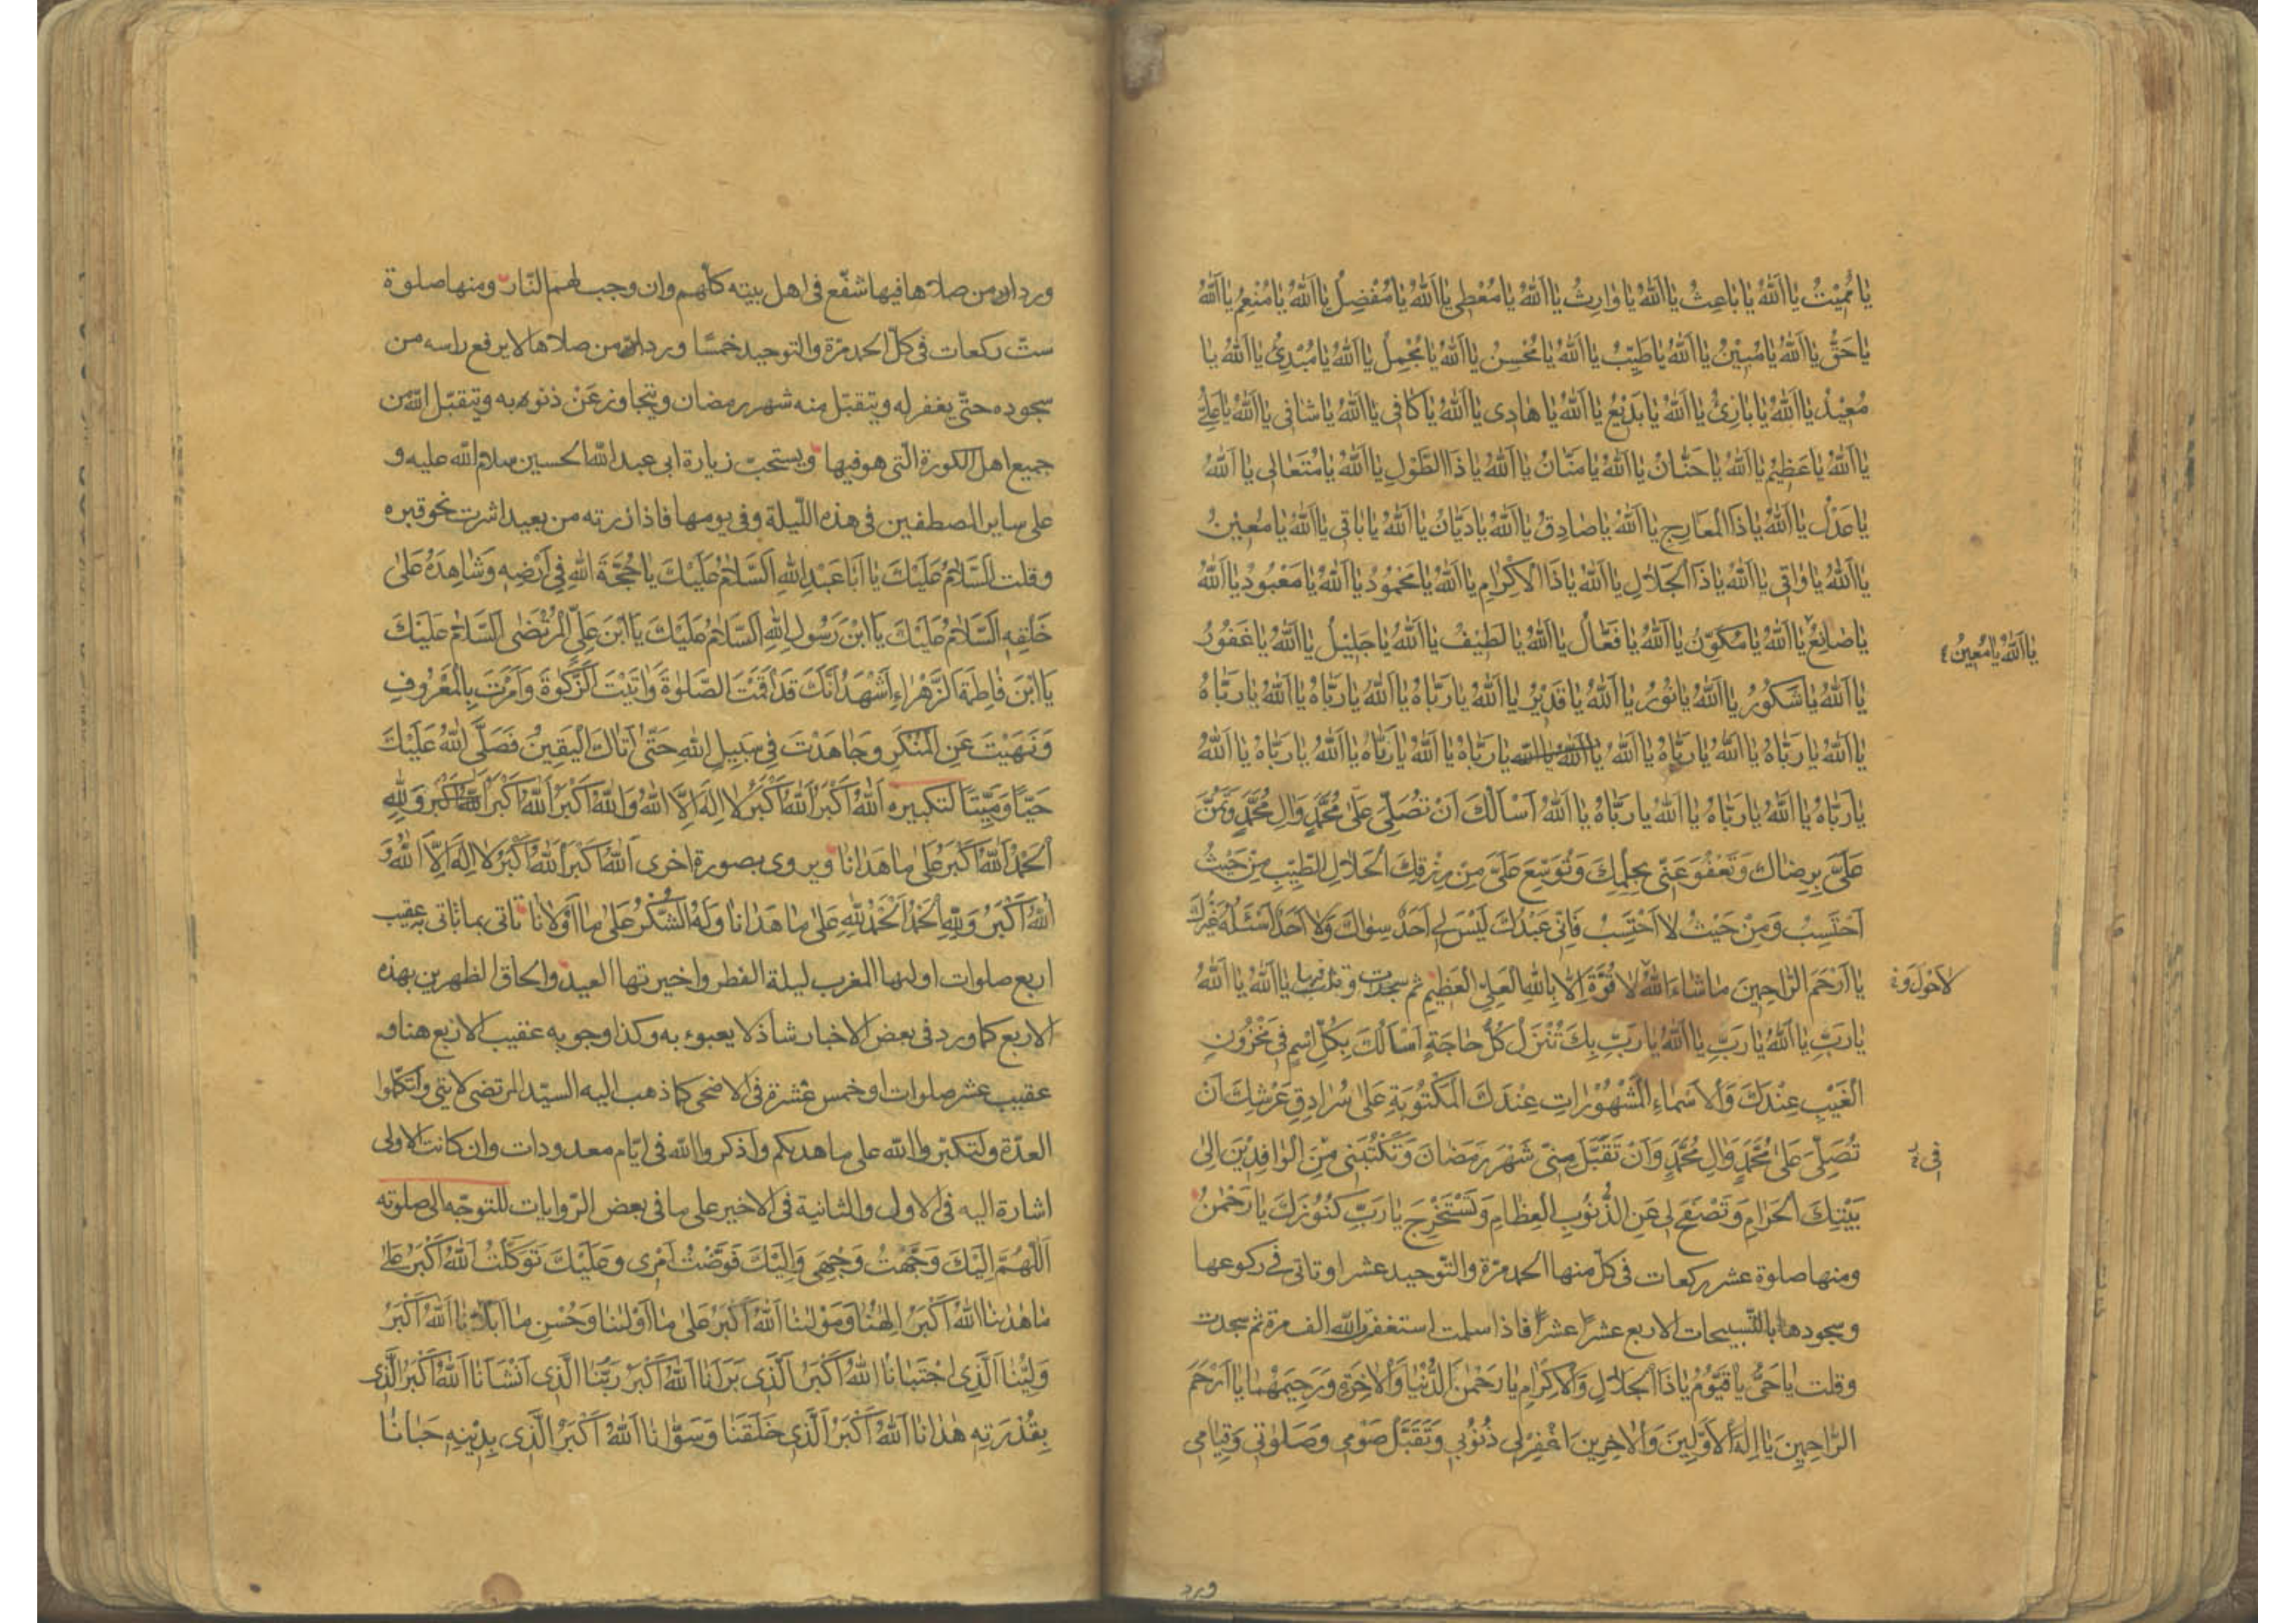 يٰا مُمِيْتُ يٰا اَللّٰهُ يٰا بٰاعِثُ يٰا اَللّٰهُ يٰا وٰارِثُ يٰا اَللّٰهُ يٰا مُعْطِي يٰا اَللّٰهُ يٰا مُفْضِلُ يٰا اَللّٰهُ يٰا مُنْعِمُ يٰا اَللّٰهُ
يٰا حَقُّ يٰا اَللّٰهُ يٰا مُبِيْنُ يٰا اَللّٰهُ يٰا طَيِّبُ يٰا اَللّٰهُ يٰا مُحْسِنُ يٰا اَللّٰهُ يٰا مُجْمِلُ يٰا اَللّٰهُ يٰا مُبْدِئُ يٰا اَللّٰهُ يٰا
مُعِيْدُ يٰا اَللّٰهُ يٰا بٰارِئُ يٰا اَللّٰهُ يٰا بَدِيْعُ يٰا اَللّٰهُ يٰا هٰادِى يٰا اَللّٰهُ يٰا كٰافِى يٰا اَللّٰهُ يٰا شٰافِى يٰا اَللّٰهُ يٰا عَلِىُّ
يٰا اَللّٰهُ يٰا عَظِيْمُ يٰا اَللّٰهُ يٰا حَنّٰانُ يٰا اَللّٰهُ يٰا مَنّٰانُ يٰا اَللّٰهُ يٰا ذَا الطَّوْلِ يٰا اَللّٰهُ يٰا مُتَعٰالِى يٰا اَللّٰهُ
يٰا عَدْلُ يٰا اَللّٰهُ يٰا ذَا الْمَعٰارِجِ يٰا اَللّٰهُ يٰا صٰادِقُ يٰا اَللّٰهُ يٰا دَيّٰانُ يٰا اَللّٰهُ يٰا بٰاقِى يٰا اَللّٰهُ يٰا مُعِيْنُ
يٰا اَللّٰهُ يٰا وٰاقِى يٰا اَللّٰهُ يٰا ذَا الْجَلٰالِ يٰا اَللّٰهُ يٰا ذَا الْاِكْرٰامِ يٰا اَللّٰهُ يٰا مَحْمُوْدُ يٰا اَللّٰهُ يٰا مَعْبُودُ يٰا اَللّٰهُ
يٰا صٰانِعُ يٰا اَللّٰهُ يٰا مُكَوِّنُ يٰا اَللّٰهُ يٰا فَعّٰالُ يٰا اَللّٰهُ يٰا لَطِيْفُ يٰا اَللّٰهُ يٰا جَلِيْلُ يٰا اَللّٰهُ يٰا غَفُورُ
يٰا اَللّٰهُ يٰا مُعِيْنُ ٤
يٰا اَللّٰهُ يٰا شَكُورُ يٰا اَللّٰهُ يٰا نُورُ يٰا اَللّٰهُ يٰا قَدِيْرُ يٰا اَللّٰهُ يٰا رَبّٰاهُ يٰا اَللّٰهُ يٰا رَبّٰاهُ يٰا اَللّٰهُ يٰا رَبّٰاهُ
يٰا اَللّٰهُ يٰا رَبّٰاهُ يٰا اَللّٰهُ يٰا رَبّٰاهُ يٰا اَللّٰهُ يٰا اَللّٰهُ يٰا اللّٰه يٰا رَبّٰاهُ يٰا اَللّٰهُ يٰا رَبّٰاهُ يٰا اَللّٰهُ يٰا رَبّٰاهُ يٰا اَللّٰهُ
يٰا رَبّٰاهُ يٰا اَللّٰهُ يٰا رَبّٰاهُ يٰا اَللّٰهُ يٰا رَبّٰاهُ يٰا اَللّٰهُ اَسْأَلُكَ اَنْ تُصَلِّىَ عَلٰى مُحَمَّدٍ وَاٰلِ مُحَمَّدٍ وَتَمُنَّ
عَلَىَّ بِرِضٰاكَ وَتَعْفُوَ عَنِّى بِحِلْمِكَ وَتُوَسِّعَ عَلَىَّ مِنْ رِزْقِكَ الْحَلٰالِ الطَّيِّبِ مِنْ حَيْثُ
اَحْتَسِبُ وَمِنْ حَيْثُ لٰا اَحْتَسِبُ فَاِنِّى عَبْدُكَ لَيْسَ لِى اَحَدٌ سِوٰاكَ وَلٰا اَحَدٌ اَسْئَلُهُ غَيْرُكَ
يٰا اَرْحَمَ الرّٰاحِمِيْنَ مٰا شٰاءَ اللّٰهُ لٰا قُوَّةَ اِلّٰا بِاللّٰهِ الْعَلِىِّ الْعَظِيْمِ ثم سجدت وقلت فيها يٰا اَللّٰهُ يٰا اَللّٰهُ
لٰا حَوْلَ وَ
يٰا رَبِّ يٰا اَللّٰهُ يٰا رَبِّ يٰا اَللّٰهُ يٰا رَبِّ بِكَ تُنْزَلُ كُلُّ حٰاجَةٍ اَسْأَلُكَ بِكُلِّ اسْمٍ فِى مَخْزُونِ
الْغَيْبِ عِنْدَكَ وَالْاَسْمٰاءِ الْمَشْهُوْرٰاتِ عِنْدَكَ الْمَكْتُوبَةِ عَلٰى سُرٰادِقِ عَرْشِكَ اَنْ
تُصَلِّىَ عَلٰى مُحَمَّدٍ وَاٰلِ مُحَمَّدٍ وَاَنْ تَقَبَّلَ مِنِّى شَهْرَ رَمَضٰانَ وَتَكْتُبَنِى مِنَ الْوٰافِدِيْنَ اِلٰى
بَيْتِكَ الْحَرٰامِ وَتَصْفَحَ لِى عَنِ الذُّنُوبِ الْعِظٰامِ وَتَسْتَخْرِجَ يٰا رَبِّ كُنُوْزَكَ يٰا رَحْمٰنُ
ومنها صلوة عشر ركعات فى كلّ منها الحمد مرّة والتّوحيد عشرا وتاتى فى ركوعها
وسجودها بالتّسبيحات الاربع عشرًا عشرًا فاذا سلمت استغفرت اللّه الف مرة ثم سجدت
وقلت يٰا حَىُّ يٰا قَيُّوْمُ يٰا ذَا الْجَلٰالِ وَالْاِكْرٰامِ يٰا رَحْمٰنَ الدُّنْيٰا وَالْاٰخِرَةِ وَرَحِيمَهُمٰا يٰا اَرْحَمَ
الرّٰاحِمِيْنَ يٰا اِلٰهَ الْاَوَّلِيْنَ وَالْاٰخِرِيْنَ اغْفِرْلِى ذُنُوبِى وَتَقَبَّلْ صَوْمِى وَصَلٰوتِى وَقِيٰامِى
ورد
ورد ان من صلاها فيها شفّع فى اهل بيته كلّهم وان وجب لهم النّار ومنها صلوة
ستّ ركعات فى كلّ الحمد مرّة والتوحيد خمسًا ورد انّ من صلاها لا يرفع راسه من
سجوده حتّى يغفر له ويتقبّل منه شهر رمضان ويتجاوز عَنْ ذنوبه ويتقبّل اللّه من
جميع اهل الكورة الّتى هو فيها ويستحبّ زيارة ابى عبد اللّه الحسين سلام اللّه عليه و
على ساير المصطفين فى هذه اللّيلة وفى يومها فاذا زرته من بعيد اشرت نحو قبره
وقلت اَلسَّلٰامُ عَلَيْكَ يٰا اَبٰا عَبْدِ اللّٰهِ اَلسَّلٰامُ عَلَيْكَ يٰا حُجَّةَ اللّٰهِ فِى اَرْضِهِ وَشٰاهِدَهُ عَلٰى
خَلْقِهِ اَلسَّلٰامُ عَلَيْكَ يَا ابْنَ رَسُولِ اللّٰهِ اَلسَّلٰامُ عَلَيْكَ يَا ابْنَ عَلِىٍّ الْمُرْتَضٰى اَلسَّلٰامُ عَلَيْكَ
يَا ابْنَ فٰاطِمَةَ الزَّهْرٰاءِ اَشْهَدُ اَنَّكَ قَدْ اَقَمْتَ الصَّلٰوةَ وَاٰتَيْتَ الزَّكٰوةَ وَاَمَرْتَ بِالْمَعْرُوفِ
وَنَهَيْتَ عَنِ الْمُنْكَرِ وَجٰاهَدْتَ فِى سَبِيلِ اللّٰهِ حَتّٰى اَتٰاكَ الْيَقِيْنُ فَصَلَّى اللّٰهُ عَلَيْكَ
حَيًّا وَمَيِّتًا لتكبيره اَللّٰهُ اَكْبَرُ اَللّٰهُ اَكْبَرُ لٰا اِلٰهَ اِلَّا اللّٰهُ وَاللّٰهُ اَكْبَرُ اَللّٰهُ اَكْبَرُ اَللّٰهُ اَكْبَرُ وَلِلّٰهِ
الْحَمْدُ اَللّٰهُ اَكْبَرُ عَلٰى مٰا هَدٰانٰا ويروى بصورة اخرى اَللّٰهُ اَكْبَرُ اَللّٰهُ اَكْبَرُ لٰا اِلٰهَ اِلَّا اللّٰهُ وَ
اللّٰهُ اَكْبَرُ وَلِلّٰهِ الْحَمْدُ اَلْحَمْدُ لِلّٰهِ عَلٰى مٰا هَدٰانٰا وَلَهُ الشُّكْرُ عَلٰى مٰا اَوْلٰانٰا تاتى بما تاتى به عقيب
اربع صلوات اولها المغرب ليلة الفطر واخيرتها العيد والحاق الظهرين بهذه
الاربع كما ورد فى بعض الاخبار شاذ لا يعبوء به وكذا وجوبه عقيب الاربع هنا و
عقيب عشر صلوات او خمس عشرة فى الاضحى كما ذهب اليه السيّد المرتضى لايتى ولتكملوا
العدّة ولتكبّروا اللّه على ما هديكم واذكروا اللّه فى ايّام معدودات وان كانت الاولى
اشارة اليه فى الاول والثانية فى الاخير على ما فى بعض الرّوايات للتوجّه الى صلوته
اَللّٰهُمَّ اِلَيْكَ وَجَّهْتُ وَجْهِىَ وَاِلَيْكَ فَوَّضْتُ اَمْرِى وَعَلَيْكَ تَوَكَّلْتُ اَللّٰهُ اَكْبَرُ عَلٰى
مٰا هَدٰينَا اَللّٰهُ اَكْبَرُ اِلٰهُنٰا وَمَوْلٰينٰا اَللّٰهُ اَكْبَرُ عَلٰى مٰا اَوْلٰينٰا وَحُسْنِ مٰا اَبْلٰانٰا اَللّٰهُ اَكْبَرُ
وَلِيُّنَا الَّذِى اجْتَبٰانٰا اَللّٰهُ اَكْبَرُ الَّذِى بَرَاَنٰا اَللّٰهُ اَكْبَرُ رَبُّنَا الَّذِى اَنْشَاَنٰا اَللّٰهُ اَكْبَرُ الَّذِى
بِقُدْرَتِهِ هَدٰانٰا اَللّٰهُ اَكْبَرُ الَّذِى خَلَقَنٰا وَسَوّٰانٰا اَللّٰهُ اَكْبَرُ الَّذِى بِدِيْنِهِ حَبٰانٰا